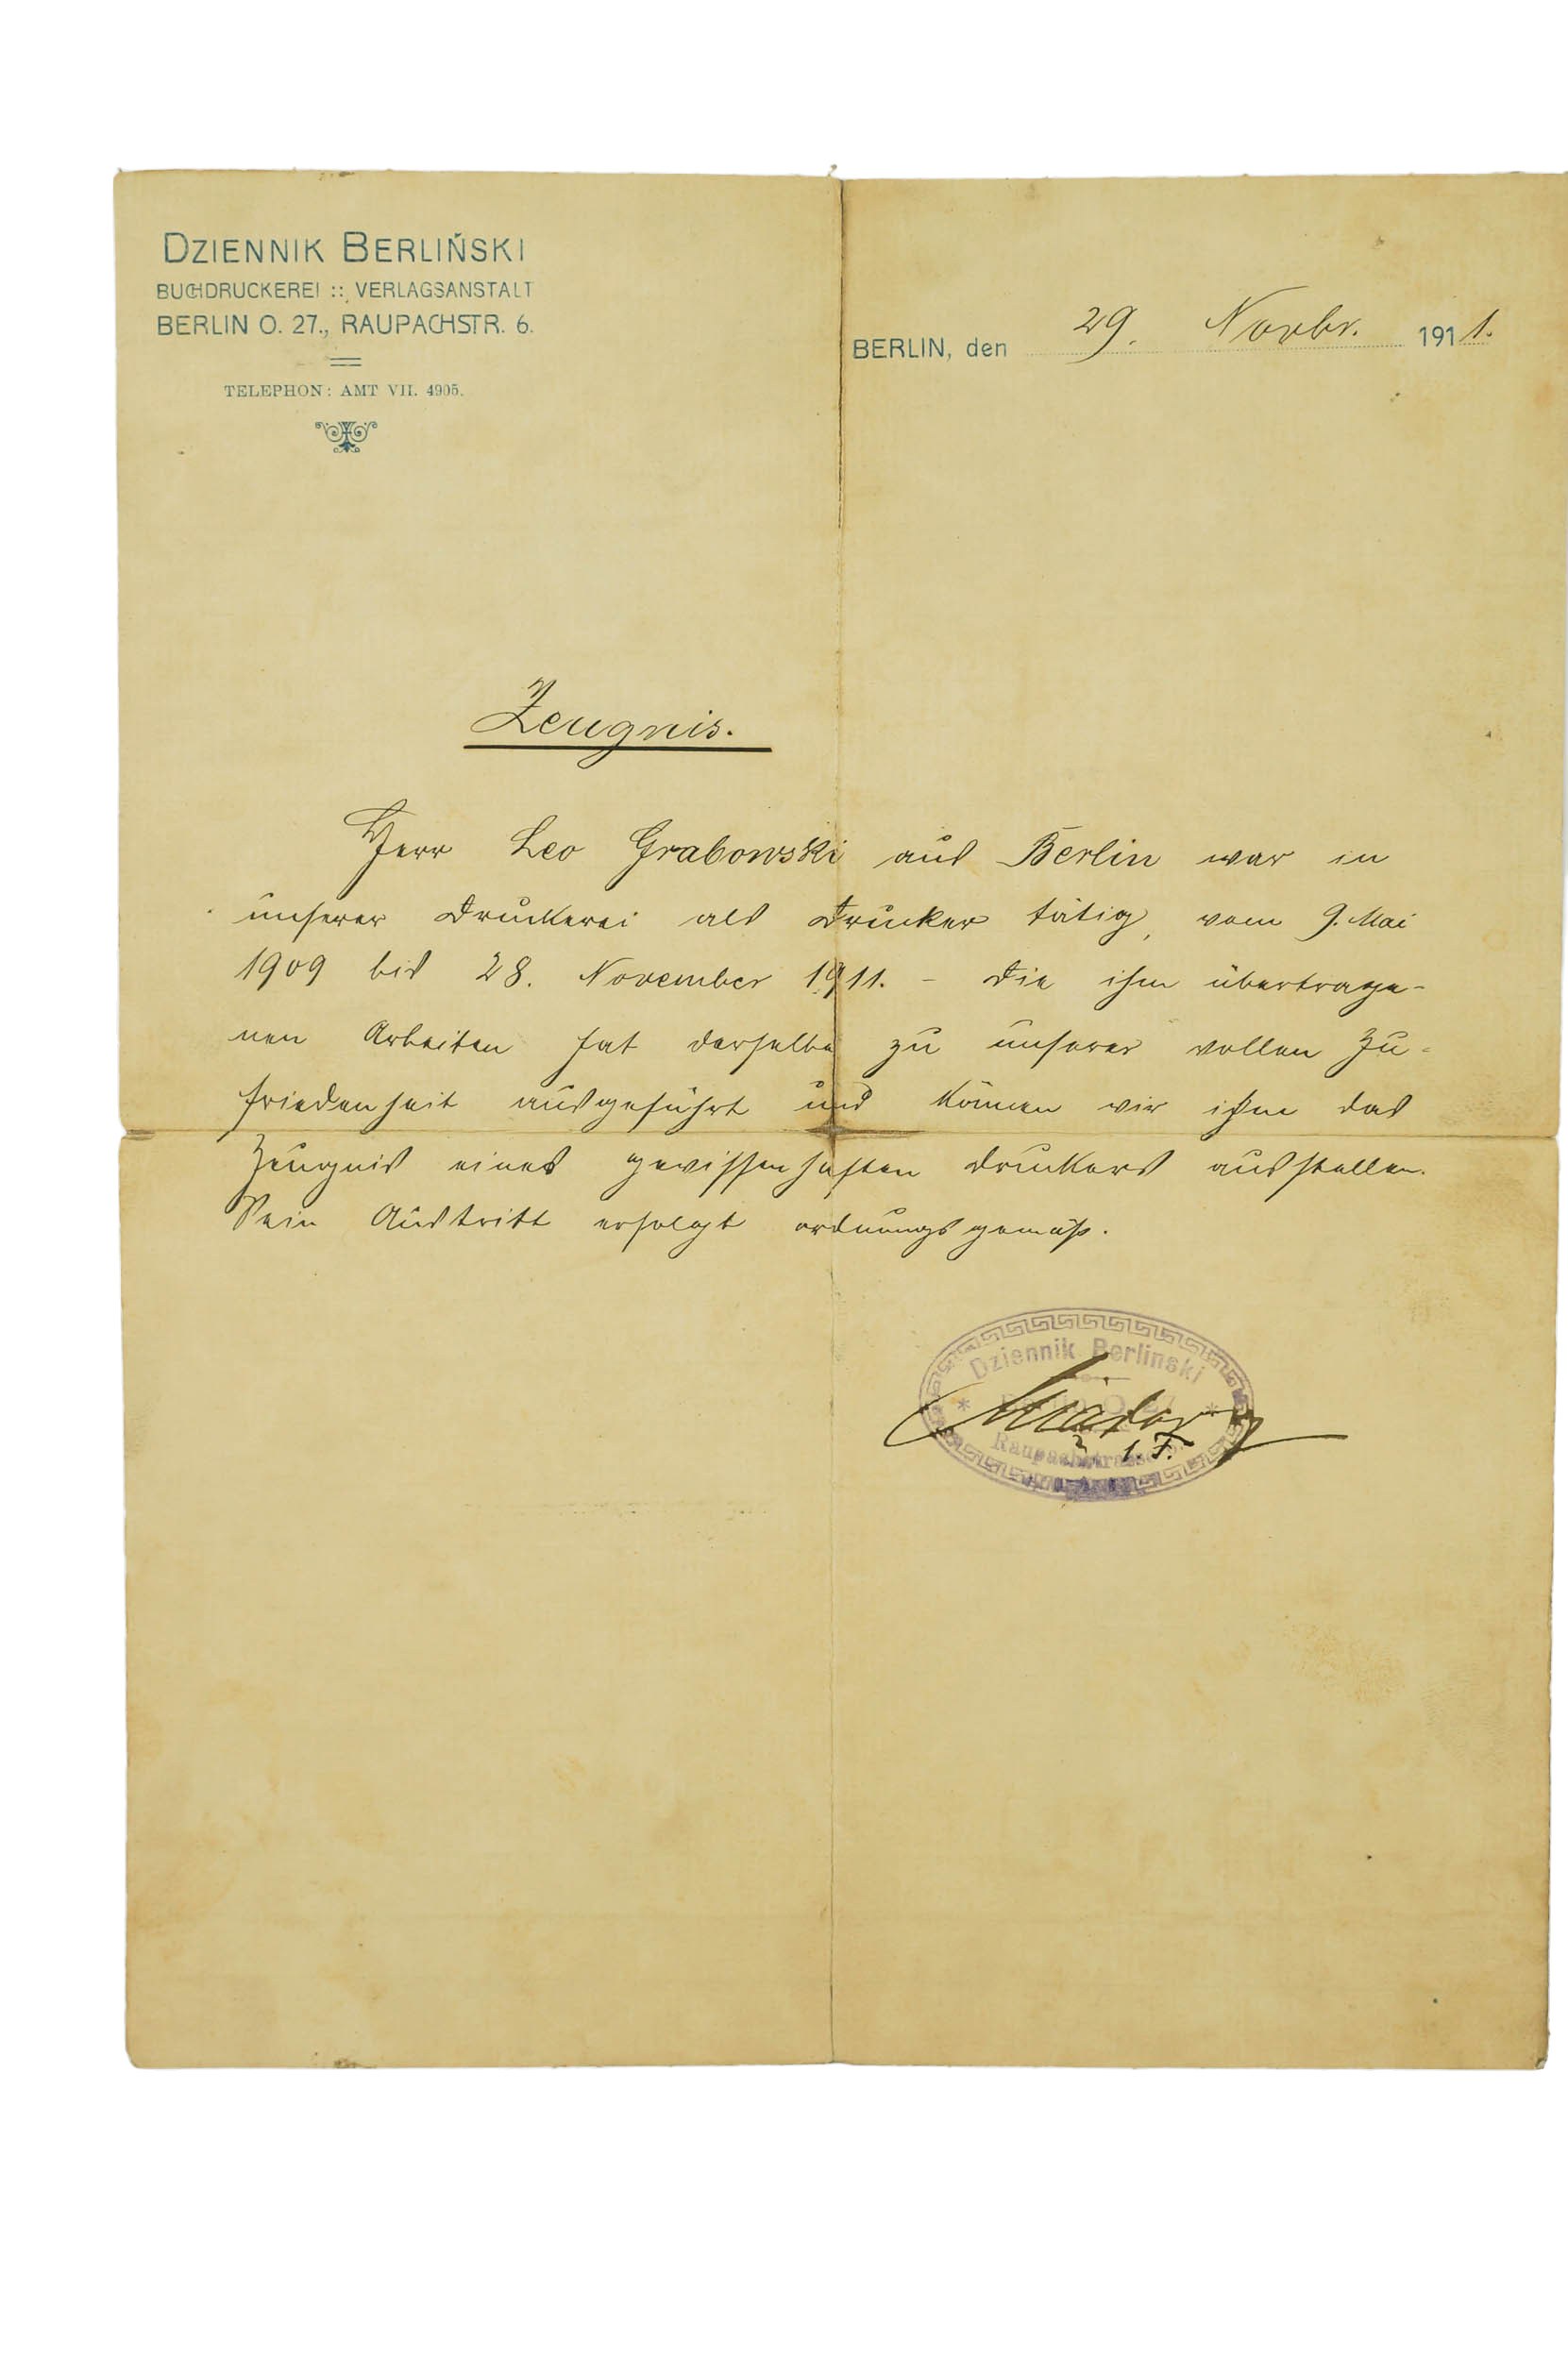 DZIENNIK BERLIŃSKI
BUCHDRUCKEREI :: VERLAGSANSTALT
BERLIN O. 27., RAUPACHSTR. 6.
TELEPHON: AMT VII. 4905.
BERLIN, den 29. Novbr. 1911.
Zeugnis.
Herr Leo Grabowski aus Berlin war in
unserer Druckerei als Drucker tätig, vom 9. Mai
1909 bis 28. November 1911. – Die ihm übertrage-
nen Arbeiten hat derselbe zu unserer vollen Zu-
friedenheit ausgeführt und können wir ihm das
Zeugnis eines gewissenhaften Druckers ausstellen.
Sein Austritt erfolgt ordnungsgemäß.
Dziennik Berlinski
Raupachstrasse